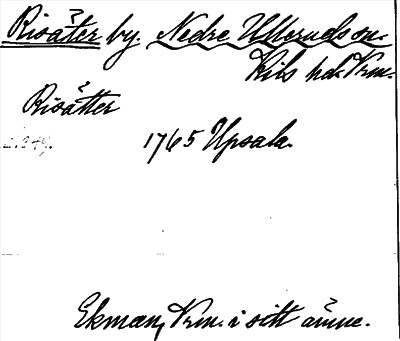 Risäter by. Nedre Ulleruds sn.
Kils hd. Vrm.
Risätter
1765 Upsala.
Ekman, Vrm. i sitt ämne.